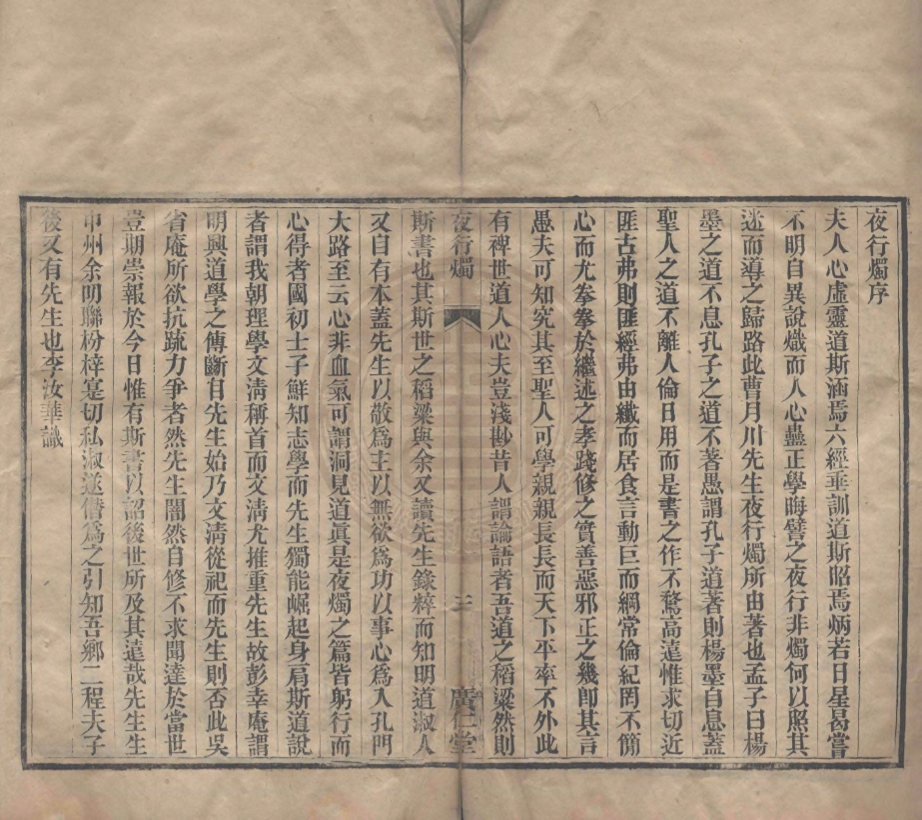 夜行燭序
夫人心虛靈道斯涵焉六經垂訓道斯昭焉炳若日星曷嘗
不明自異說熾而人心蠱正學晦譬之夜行非燭何以照其
迷而導之歸路此曹月川先生夜行燭所由著也孟子曰楊
墨之道不息孔子之道不著愚謂孔子道著則楊墨自息蓋
聖人之道不離人倫日用而是書之作不騖高遠惟求切近
匪占弗則匪經弗由纖而居食言動巨而綱常倫紀罔不簡
心而尤拳拳於繼述之孝踐修之實善惡邪正之幾卽其言
愚夫可知究其至聖人可學親親長長而天下平率不外此
有裨世道人心夫豈淺尠昔人謂論語者吾道之稻粱然則
夜行燭
三
廣仁堂
斯書也其斯世之稻粱與余又讀先生錄粹而知明道淑人
又自有本蓋先生以敬爲主以無欲爲功以事心爲入孔門
大路至云心非血氣可謂洞見道眞是夜燭之篇皆躬行而
心得者國初士子鮮知志學而先生獨能崛起身肩斯道說
者謂我朝理學文淸稱首而文淸尤推重先生故彭幸庵謂
明興道學之傳斷自先生始乃文淸從祀而先生則否此吳
省庵所欲抗疏力爭者然先生闇然自修不求聞達於當世
豈期崇報於今日惟有斯書以詔後世所及其遠哉先生生
中州余明聯枌梓寔切私淑遂僭爲之引知吾鄉二程夫子
後又有先生也李汝華識